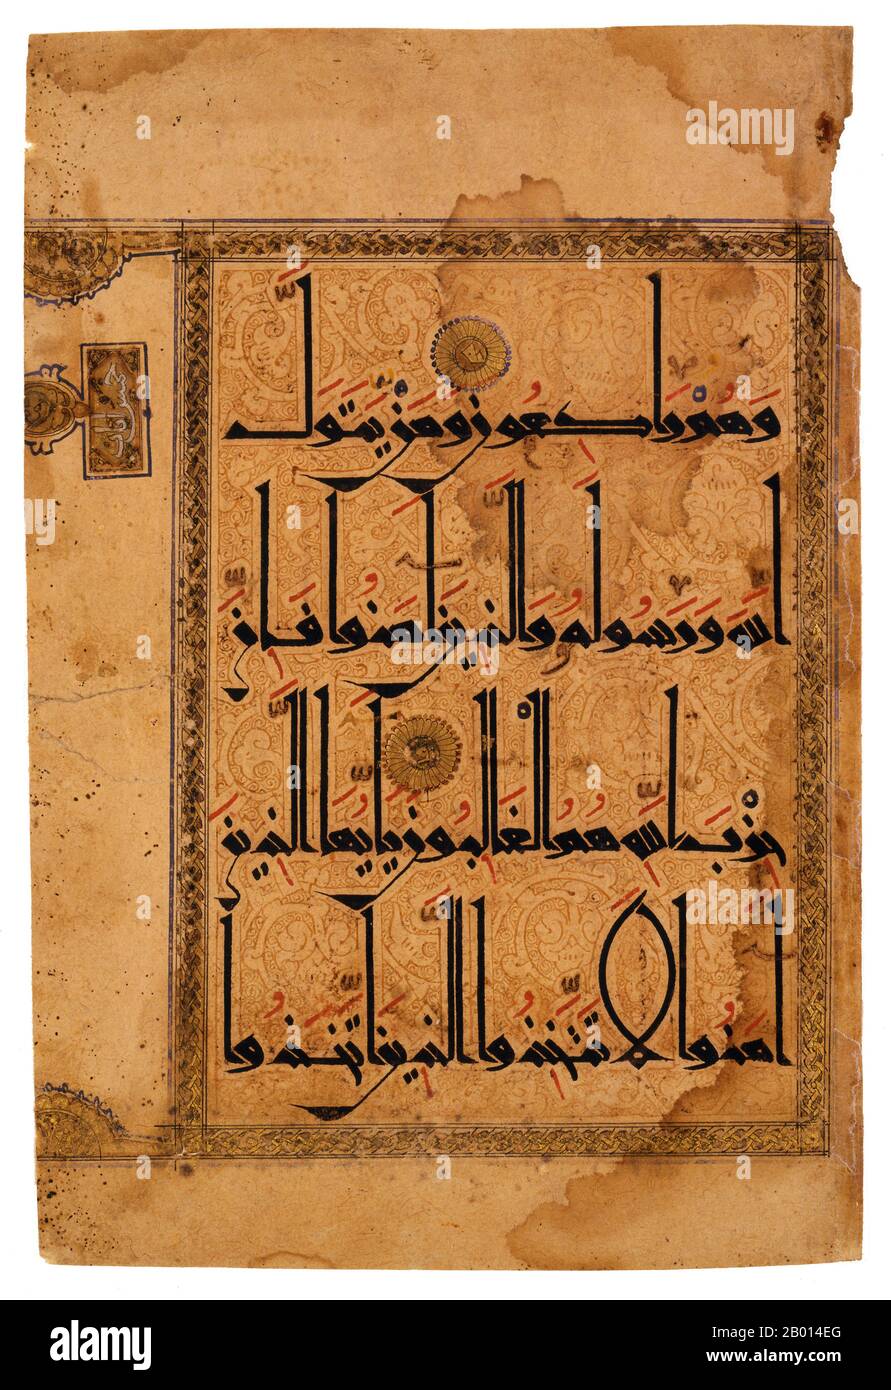 وَهُمْ رَاكِعُونَ وَمَنْ يَتَوَلَّ
خمس آيات
اللَّهَ وَرَسُولَهُ وَالَّذِينَ آمَنُوا فَإِنَّ
حِزْبَ اللَّهِ هُمُ الْغَالِبُونَ يَايُّهَا الَّذِينَ
آمَنُوا لَا تَتَّخِذُوا الَّذِينَ اتَّخَذُوا
alamy
Image ID: 2B014EG
www.alamy.com